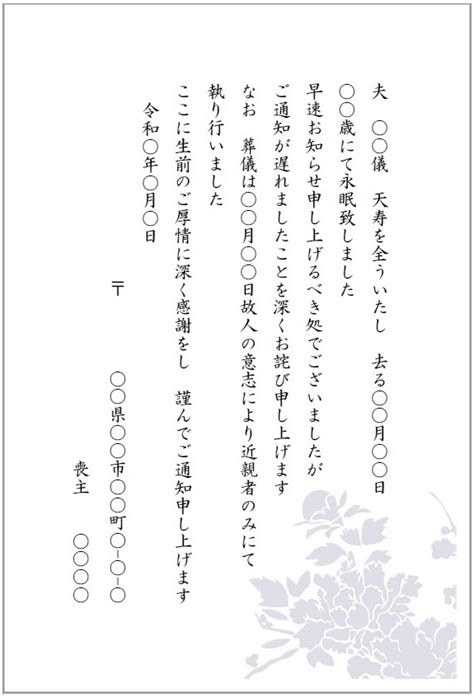 夫　〇〇儀　天寿を全ういたし　去る〇〇月〇〇日
〇〇歳にて永眠致しました
早速お知らせ申し上げるべき処でございましたが
ご通知が遅れましたことを深くお詫び申し上げます
なお　葬儀は〇〇月〇〇日故人の意志により近親者のみにて
執り行いました
ここに生前のご厚情に深く感謝をし　謹んでご通知申し上げます
令和〇年〇月〇日
〒
〇〇県〇〇市〇〇町〇-〇-〇
喪主　〇〇〇〇